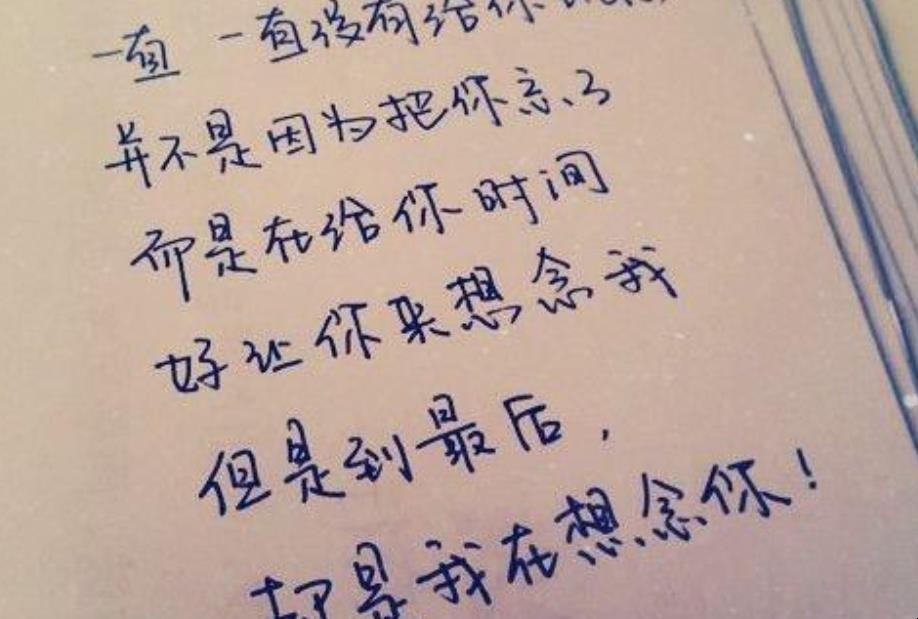 一直 一直没有给你
并不是因为把你忘了
而是在给你时间
好让你来想念我
但是到最后，
却是我在想念你！